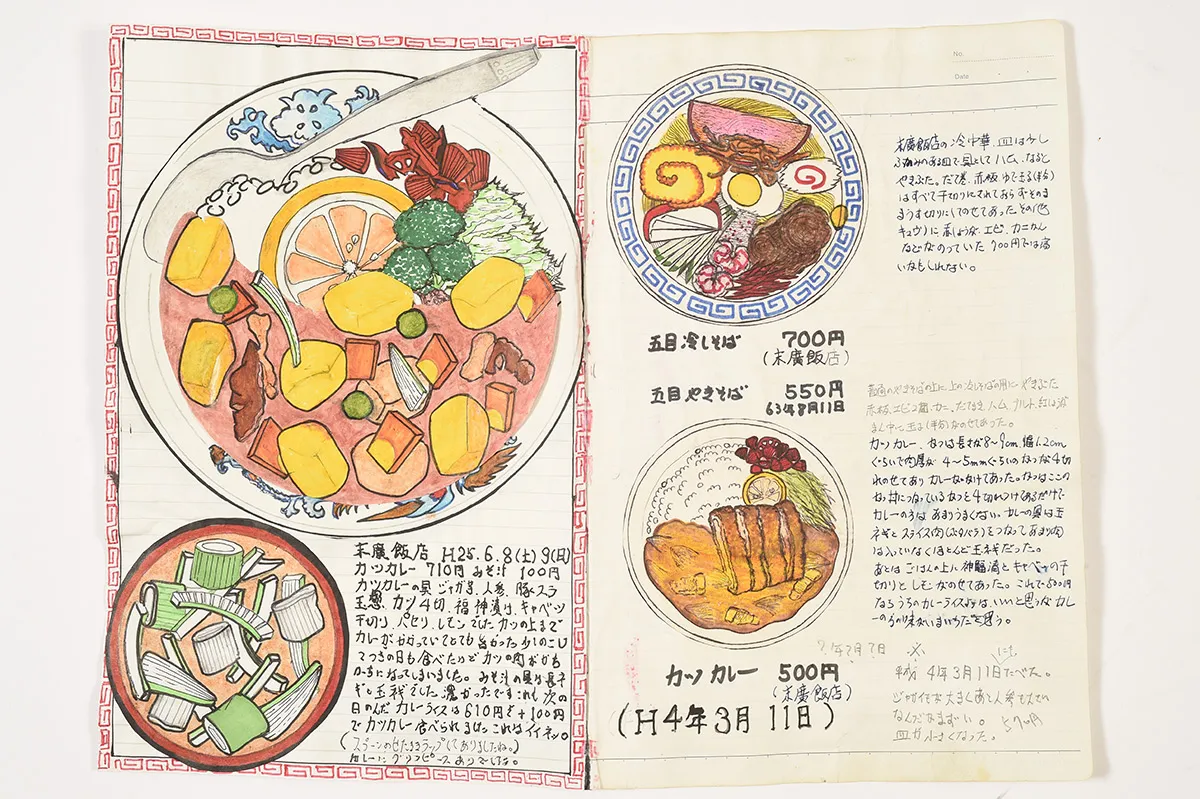 末廣飯店 H25.6.8(土)9(日)
カツカレー 710円 みそ汁 100円
カツカレーの具 ジャガ芋、人参、豚スラ
玉葱、カツ4切、福神漬け、キャベツ
千切り、パセリ、レモンでした カツの上まで
カレーがかかっていてとても旨かった 少しのこし
てつぎの日も食べたけどカツの肉が
になってしまいました。みそ汁の具は長ネ
ギと玉ネギでした 濃かったです これも次の
日のんだ カレーライスは610円 +100円
でカツカレー食べられました これはイイネ。
(スプーンのせたままラップしてありましたね。)
カレーに グリンピースありでした。
No.
Date
末廣飯店の冷中華 皿は少し
深みのある皿で具として ハム、なると
やきぶた。だて巻、赤板 ゆでたまご(半分)
はすべて千切りにされておらずそのま
まうす切りにしてのせてあった その他
キュウリに 紅しょうが、エビ、カニかん
などがのっていた 700円では高
いかもしれない。
五目冷しそば 700円
(末廣飯店)
五目やきそば 550円
63年8月11日
普通のやきそばの上に上の冷しそばの用に やきぶた
カツカレー、カツは長さが8〜9cm 幅1.2cm
ぐらいで肉厚が 4〜5mmぐらいのカツが4切
れのせてあり カレーがかけてあった。カツはここの
カツ丼にのっているカツを4切れつけてあるだけで
カレーの方は あまりうまくない。カレーの具は玉
ネギと スライス肉(ブタバラ)をつかって あまり肉
は入っていなくほとんど玉ネギだった。
あとは ごはんの上に 神福漬と キャベツの千
切りと レモンがのせてあった。これで500円
ならうちのカレーライスよりは、いいと思うが カレ
ーのあじはいまいちだと思う。
カツカレー 500円
(末廣飯店)
(H4年3月11日)
?年?月7日
平成 4年3月11日にたべた。
なんだかまずい。
皿が小さくなった。 570円